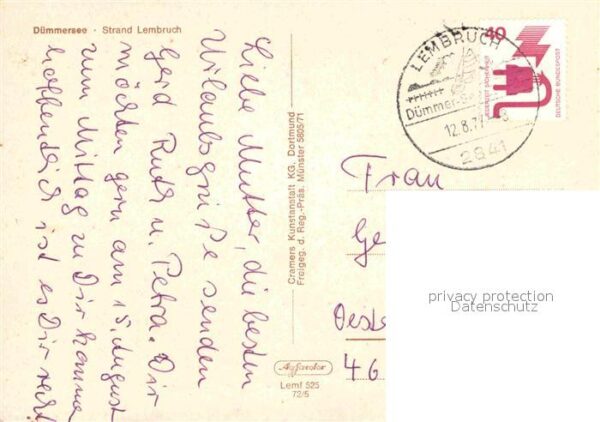 Dümmersee · Strand Lembruch
Liebe Mutter, die besten
Urlaubsgrüße senden
Gerd Ruth u. Petra. Wir
möchten gern am 15. August
zum Mittag zu Dir kommen
hoffendlich ist es Dir recht
Cramers Kunstanstalt KG, Dortmund
Freigeg. d. Reg.-Präs. Münster 5805/71
Agfacolor
Lemf 525
72/5
LEMBRUCH
Dümmer-See
12.8.7
2841
40
JEDERZEIT SICHERHEIT
DEUTSCHE BUNDESPOST
Frau
Ge
privacy protection
Datenschutz
Oeste
46